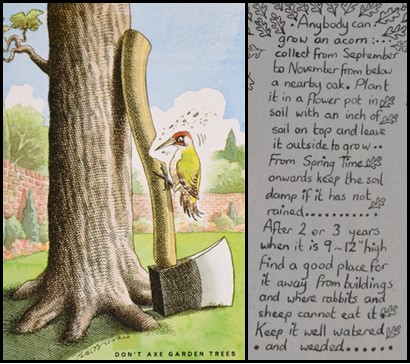 DON'T AXE GARDEN TREES
• Anybody can
grow an acorn :..
collect from September
to November from below
a nearby oak. Plant
it in a flower pot in
soil with an inch of
soil on top and leave
it outside to grow..
From Spring Time
onwards keep the soil
damp if it has not
rained...........
After 2 or 3 years
when it is 9~12" high
find a good place for
it away from buildings
and where rabbits and
sheep cannot eat it.
Keep it well watered
• and weeded.......